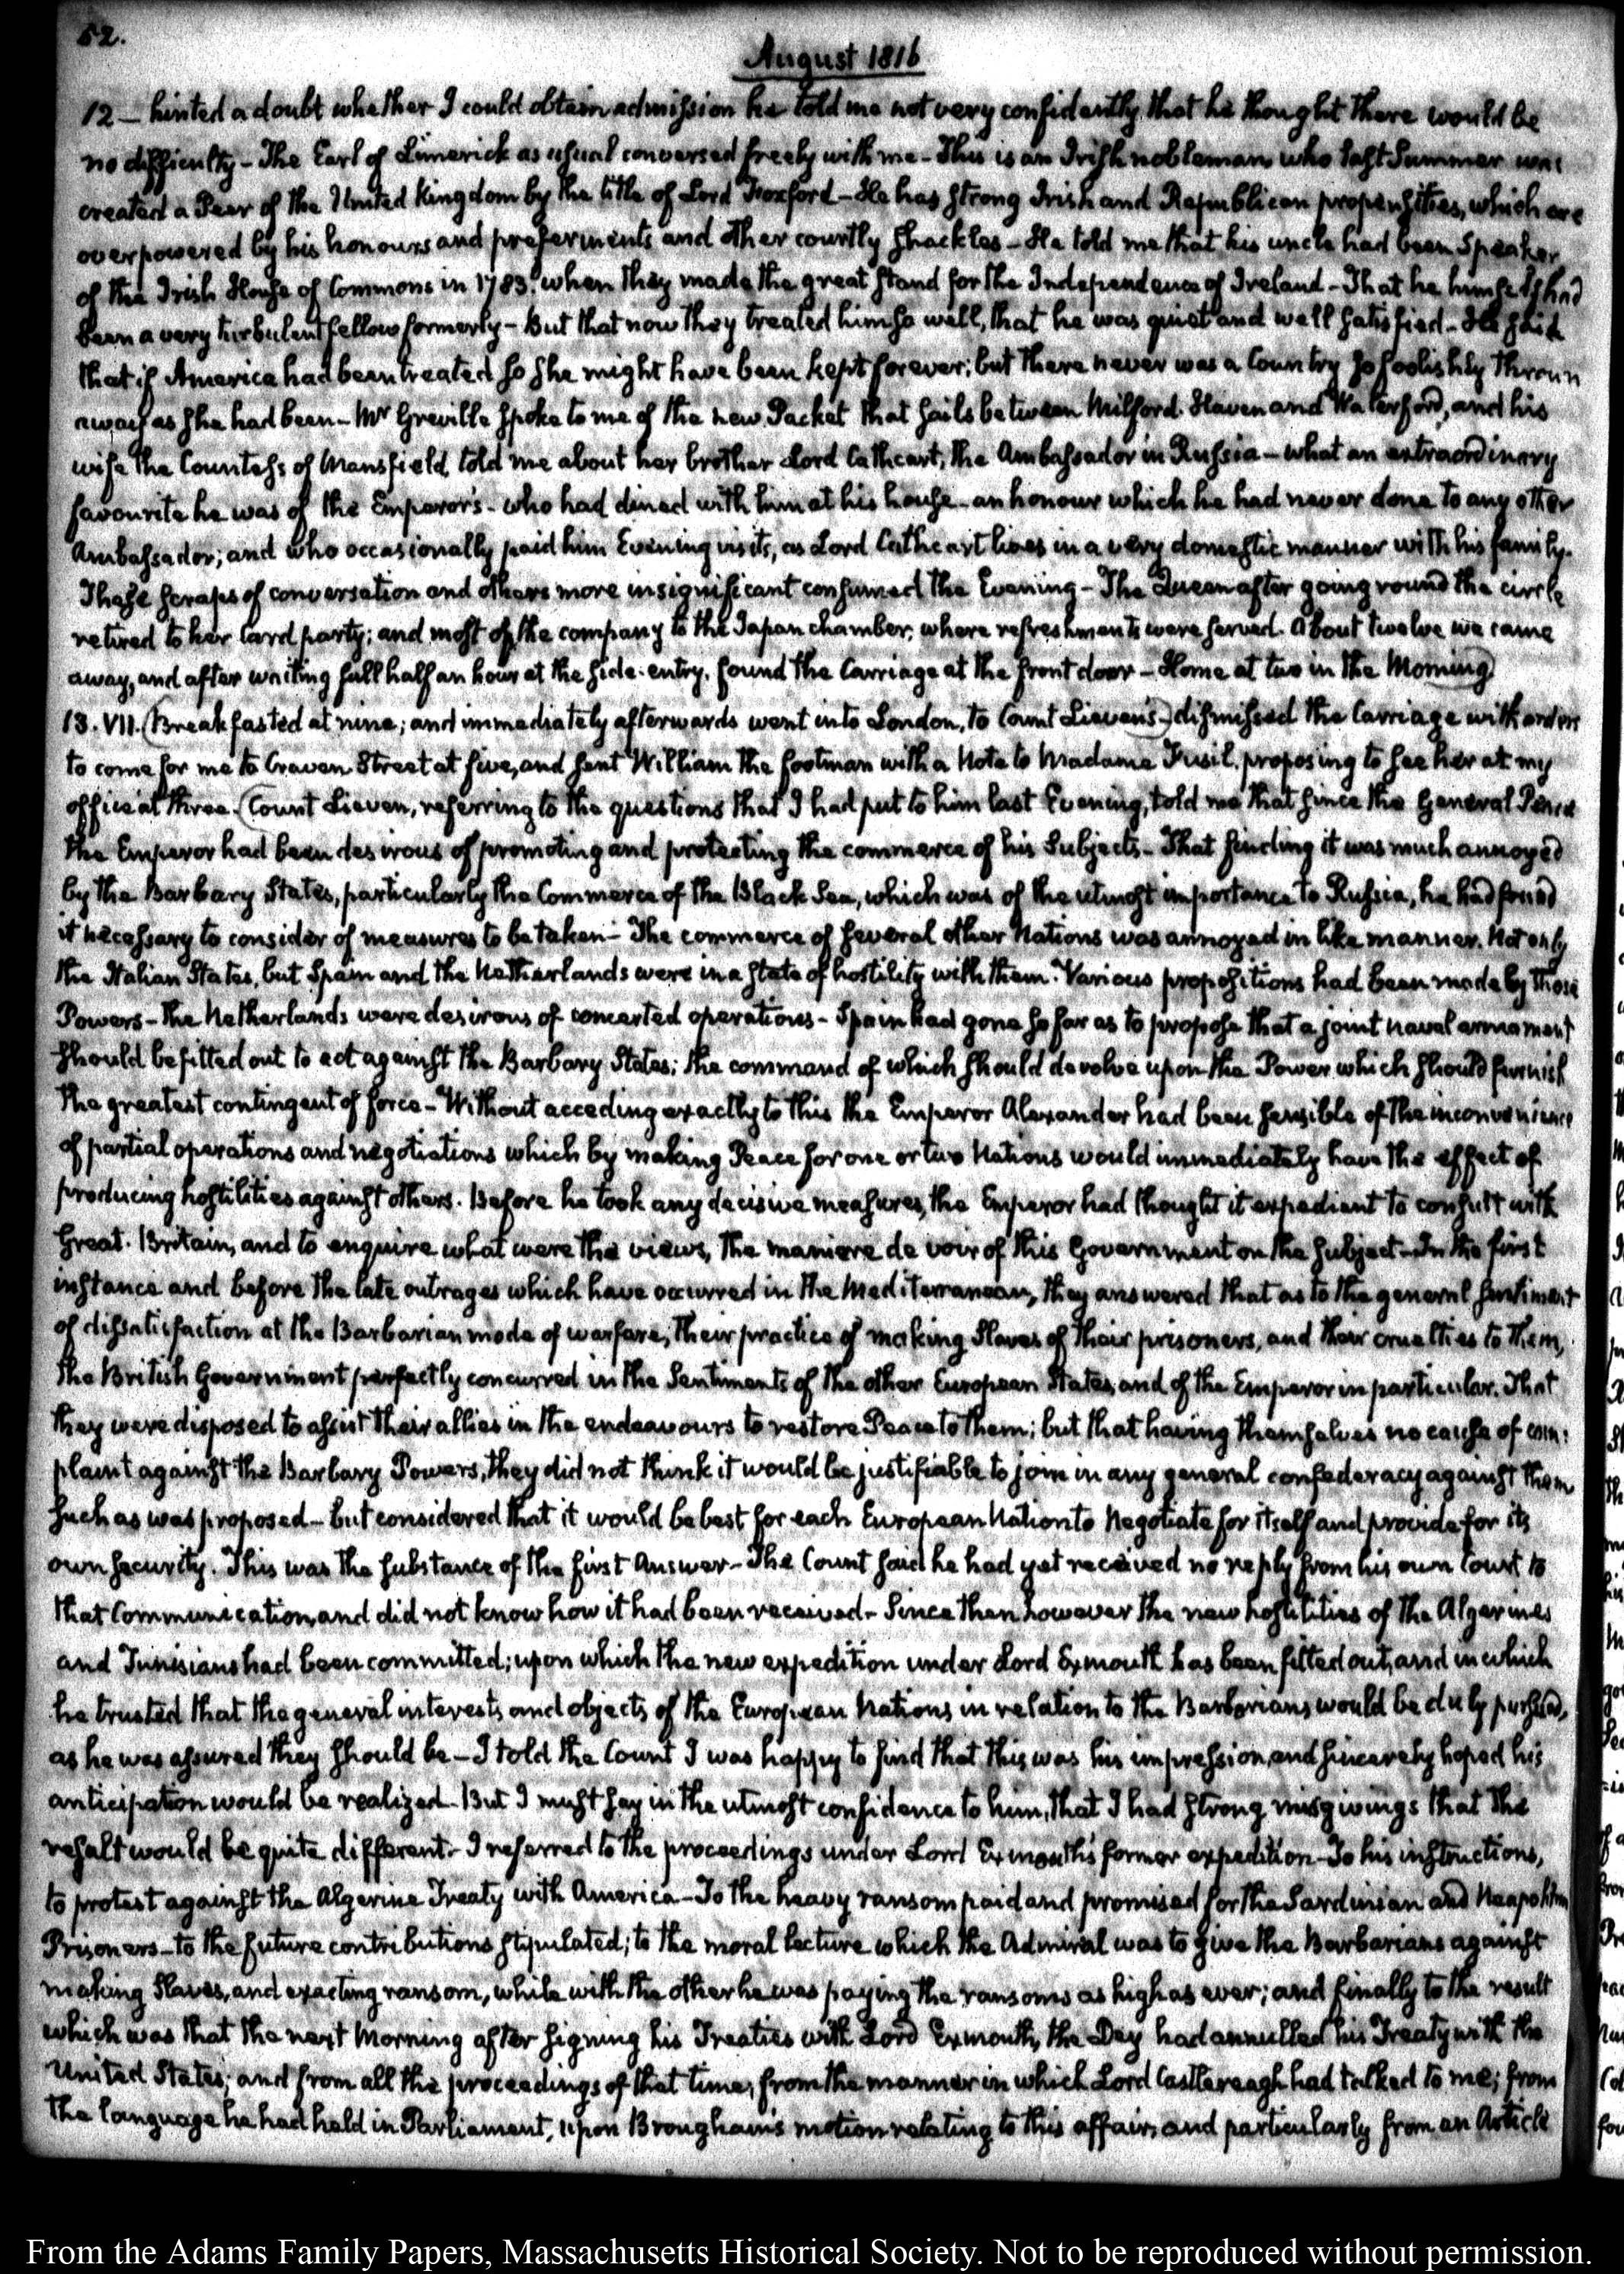 52.
August 1816
12 — hinted a doubt whether I could obtain admission he told me not very confidently that he thought there would be
no difficulty – The Earl of Limerick as usual conversed freely with me – This is an Irish nobleman who last Summer was
created a Peer of the United Kingdom by the title of Lord Foxford – He has strong Irish and Republican propensities, which are
overpowered by his honours and preferments and other courtly shackles – He told me that his uncle had been Speaker
of the Irish House of Commons in 1783. when they made the great stand for the Independence of Ireland – That he himself had
been a very turbulent fellow formerly – But that now they treated him so well, that he was quiet and well satisfied – He said
that if America had been treated so she might have been kept forever; but there never was a Country so foolishly thrown
away as she had been – Mr Greville spoke to me of the new Packet that sails between Milford-Haven and Waterford, and his
wife the Countess of Mansfield, told me about her brother Lord Cathcart, the Ambassador in Russia – what an extraordinary
favourite he was of the Emperor's – who had dined with him at his house – an honour which he had never done to any other
Ambassador; and who occasionally paid him Evening visits, as Lord Cathcart lives in a very domestic manner with his family.
These scraps of conversation and others more insignificant consumed the Evening – The Queen after going round the circle
retired to her Card party; and most of the company to the Japan chamber, where refreshments were served. About twelve we came
away, and after waiting full half an hour at the side-entry, found the Carriage at the front door – Home at two in the Morning)
13. VII. (Breakfasted at nine; and immediately afterwards went into London, to Count Lieven's –) dismissed the Carriage with orders
to come for me to Craven Street at five, and sent William the footman with a Note to Madame Fusil, proposing to see her at my
office at three. (Count Lieven, referring to the questions that I had put to him last Evening, told me that since the General Peace
the Emperor had been desirous of promoting and protecting the commerce of his Subjects – That finding it was much annoyed
by the Barbary States, particularly the Commerce of the Black Sea, which was of the utmost importance to Russia, he had found
it necessary to consider of measures to be taken – The commerce of several other Nations was annoyed in like manner. Not only
the Italian States, but Spain and the Netherlands were in a state of hostility with them. Various propositions had been made by those
Powers – The Netherlands were desirous of concerted operations – Spain had gone so far as to propose that a joint naval armament
should be fitted out to act against the Barbary States; the command of which should devolve upon the Power which should furnish
the greatest contingent of force – Without acceding exactly to this the Emperor Alexander had been sensible of the inconvenience
of partial operations and negotiations which by making Peace for one or two Nations would immediately have the effect of
producing hostilities against others. Before he took any decisive measures, the Emperor had thought it expedient to consult with
Great-Britain, and to enquire what were the views, the maniere de voir of this Government on the subject – In the first
instance and before the late outrages which have occurred in the Mediterranean, they answered that as to the general sentiment
of dissatisfaction at the Barbarian mode of warfare, their practice of making Slaves of their prisoners, and their cruelties to them,
the British Government perfectly concurred in the Sentiments of the other European States, and of the Emperor in particular. That
they were disposed to assist their allies in the endeavours to restore Peace to them; but that having themselves no cause of com:
plaint against the Barbary Powers, they did not think it would be justifiable to join in any general confederacy against them
such as was proposed – but considered that it would be best for each European Nation to Negotiate for itself and provide for its
own security. This was the substance of the first Answer – The Count said he had yet received no reply from his own Court to
that Communication, and did not know how it had been received – Since then however the new hostilities of the Algerines
and Tunisians had been committed; upon which the new expedition under Lord Exmouth has been fitted out, and in which
he trusted that the general interests and objects of the European Nations in relation to the Barbarians would be duly pursued,
as he was assured they should be – I told the Count I was happy to find that this was his impression, and sincerely hoped his
anticipation would be realized – But I must say in the utmost confidence to him, that I had strong misgivings that the
result would be quite different – I referred to the proceedings under Lord Exmouth's former expedition – To his instructions,
to protest against the Algerine Treaty with America – To the heavy ransom paid and promised for the Sardinian and Neapolitan
Prisoners – to the future contributions stipulated; to the moral lecture which the Admiral was to give the Barbarians against
making Slaves, and exacting ransom, while with the other he was paying the ransoms as high as ever; and finally to the result
which was that the next Morning after signing his Treaties with Lord Exmouth, the Dey had annulled his Treaty with the
United States; and from all the proceedings of that time; from the manner in which Lord Castlereagh had talked to me; from
the language he had held in Parliament, upon Brougham's motion relating to this affair; and particularly from an Article
From the Adams Family Papers, Massachusetts Historical Society. Not to be reproduced without permission.